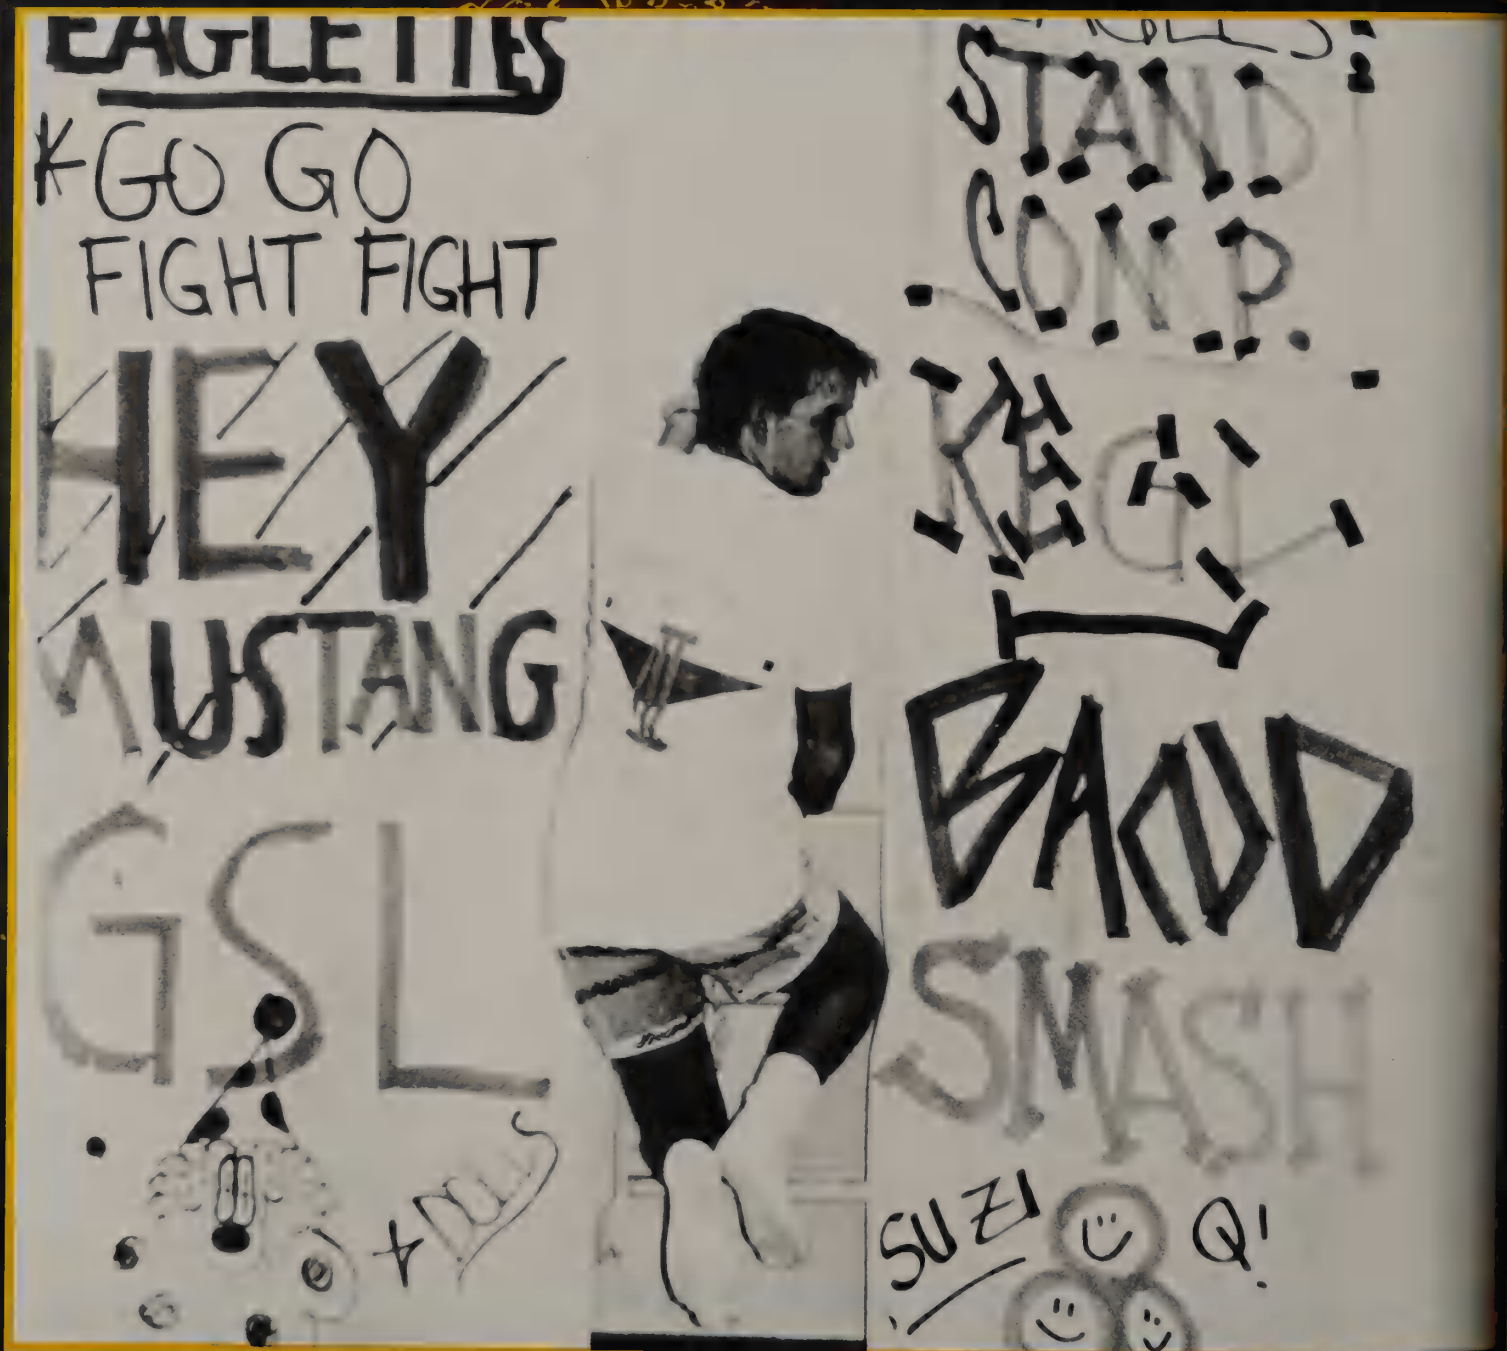 EAGLETTES
GO GO
FIGHT FIGHT
HEY
MUSTANG
GSL
+ DOLLS
STAND
COMP.
KEG
BAND
SMASH
SUZI Q!